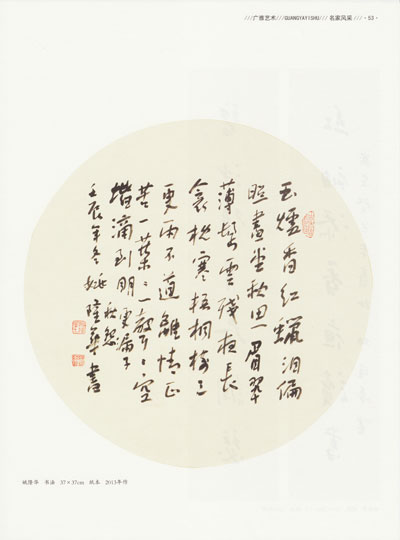 ///广雅艺术///GUANGYAYISHU///名家风采///·53·
玉爐香紅蠟泪偏
照畫堂秋思眉翠
薄鬢雲殘夜長
衾枕寒梧桐樹三
更雨不道離情正
苦一葉〻一聲〻空
階滴到明更漏子
秋怨
壬辰年冬姚隆華書
姚隆华 书法 37×37cm 纸本 2013年作